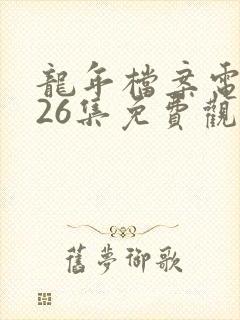 龍年檔案電
26集免費觀
舊夢御歌